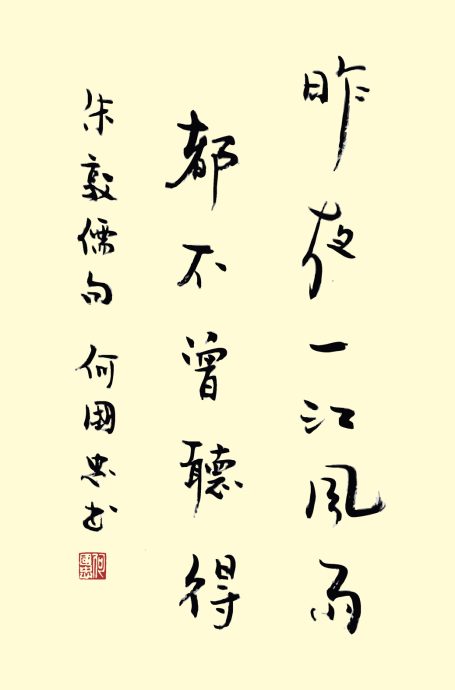 昨夜一江風雨
都不曾聽得
朱敦儒句 何國忠书